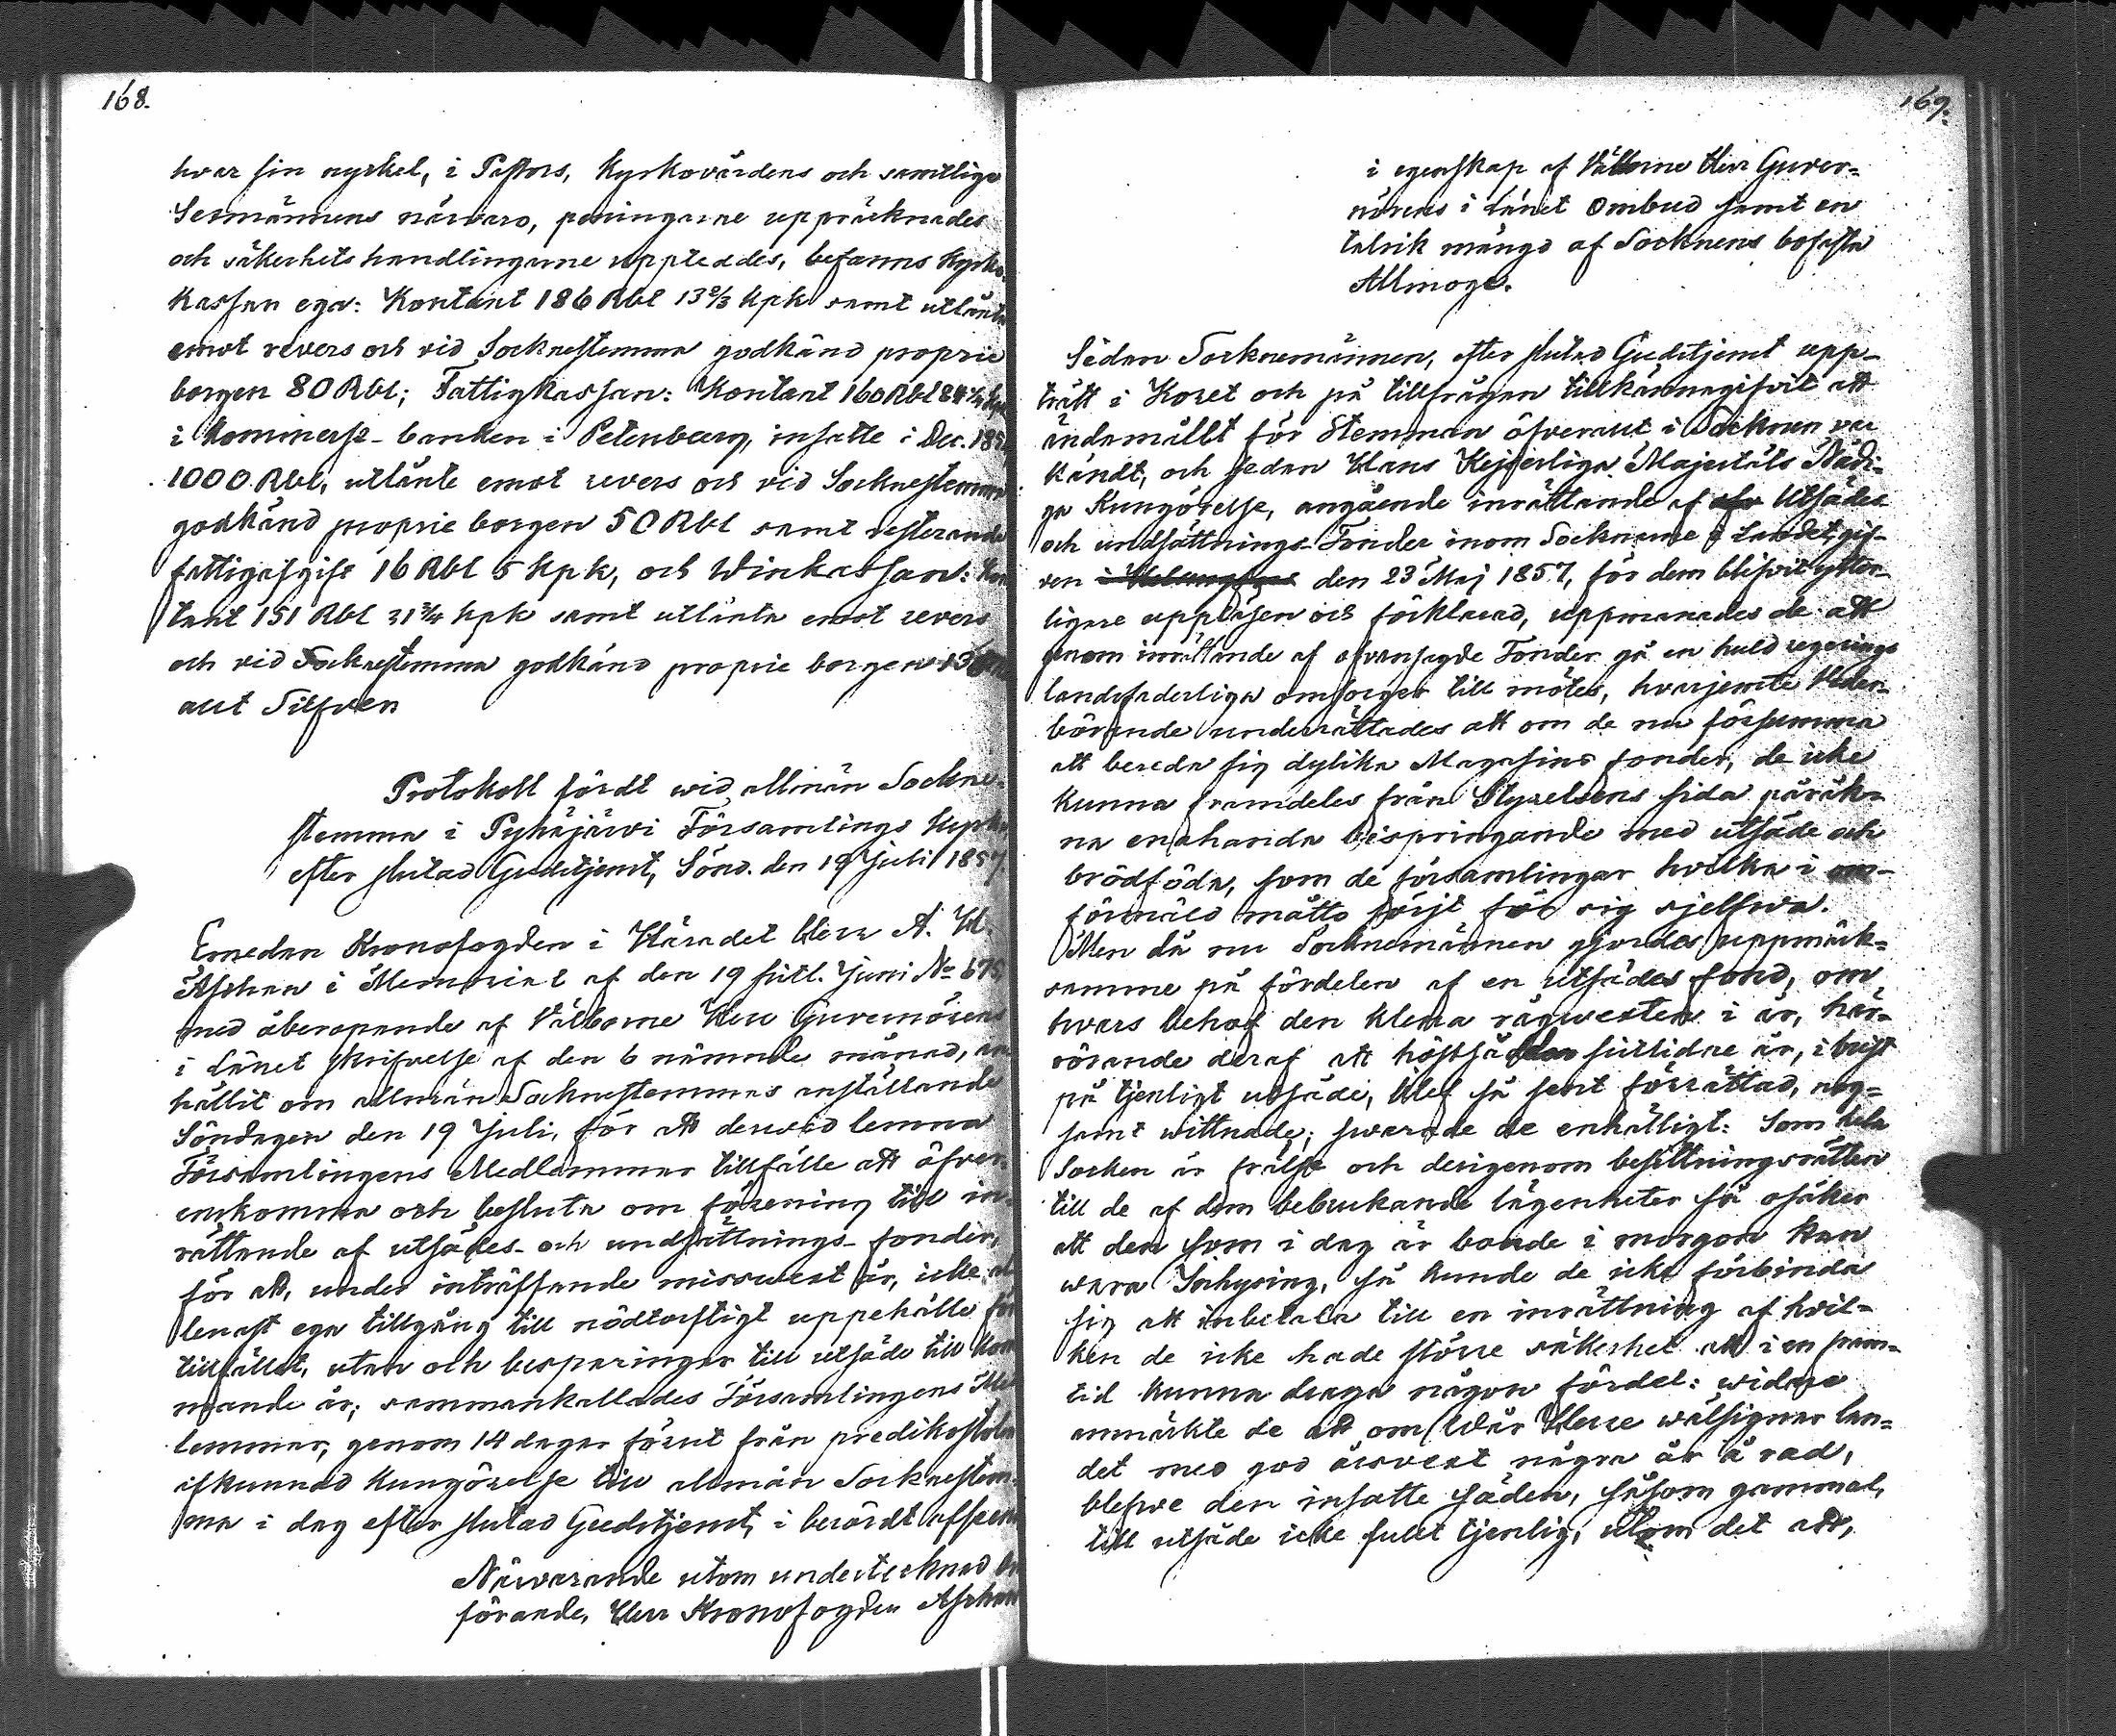 168.
hvar sin nyckel, i Pastors, Kyrkovärdens och samtliga
Sexmännens närvaro, peningarne uppräknades
och säkerhets handlingarne uppteddes, befanns Kyrko-
Kassan ega: Kontant 186 Rbl 13 2/3 Kpk samt utlånta
emot revers och vid Sockne­stemma godkänd proprie
borgen 80 Rbl; Fattigkassan: Kontant 160 Rbl
i Kommerse-banken i Petersburg, insatte i Dec.
1000 Rbl, utlånte emot revers och vid Socknestemma
godkänd proprie borgen 50 Rbl samt resterande
fattigafgift 16 Rbl 5 Kpk, och Winkassan: Kon
tant 151 Rbl 31 3/4 Kpk samt utlånta emot revers
och vid Socknestemma godkänd proprie borgen
allt Silfver
Protokoll fördt wid allmän Sockne-
stemma i Pyhäjärvi Församlings Kyrka
efter slutad Gudstjenst, Sönd. den 19 Juli 1857.
Emedan Kronofogden i Häradet Herr A. W.
Aschan i Memorial af den 19 sistl. Juni No 675,
med åberopande af Välborne Herr Guvernörens
i Länet skrifvelse af den 6 nämnde månad, an
hållit om allmän Socknestemmas anställande
Söndagen den 19 Juli, för att derwid lemna
Församlingens Medlemmar tillfälle att öfver-
enskomma och besluta om förening till in-
rättande af utsädes- och undsättnings-fonder,
för att, under inträffande missvext år, icke al
lenast ega tillgång till nödtorftigt uppehälle för
tillfället, utan och besparingar till utsäde till kom
mande år; sammankallades Församlingens Med
lemmar, genom 14 dagar förut från predikostolen
afkunnad Kungörelse till allmän Socknestem-
ma i dag efter slutad Gudstjenst, i berördt afseen
Närvarande utom undertecknad Or
förande, Herr Kronofogden Aschan
169.
i egenskap af Välborne Herr Guver-
nörens i Länet Ombud samt en
talrik mängd af Socknens bofasta
Allmoge.
Sedan Socknemännen, efter slutad Gudstjenst upp-
trätt i Koret och på tillfrågan tillkännagifvit att
ändamålet för Stemman öfverallt i Socknen var
kändt, och sedan Hans Kejserliga Majestäts Nådi-
ga Kungörelse, angående inrättande af Utsädes-
och undsättnings-Fonder inom Socknarne i Landet, gif-
ven den 23 Maj 1857, för dem blifvit ytter-
ligare uppläsen och förklarad, uppmanades de att
genom inrättande af ofvansagde Fonder gå en huld regerings
landsfaderliga omsorger till mötes, hvarjemte Veder-
börande underrättades att om de nu försumma
att bereda sig dylika Magasins fonder, de icke
kunna framdeles från Styrelsens sida påräk-
na enahanda bispringande med utsäde och
brödföda, som de församlingar hvilka i om-
förmäld måtto sörjt för sig sjelfva.
Men då nu Socknemännen gjordes uppmärk-
samme på fördelen af en utsädes fond, om
hvars behof den klena rågvexten i år, här-
rörande deraf att höstsådden sistlidne år, i brist
på tjenligt utsäde, blef så sent förrättad, nog-
samt wittnade; svarade de enhälligt: Som hela
Socken är frälse och derigenom besittningsrätten
till de af dem bebrukande lägenheter så osäker
att den som i dag är bonde i morgon kan
wara Inhysing, så kunde de icke förbinda
sig att inbetala till en inrättning af hvil-
ken de icke hade större säkerhet att i en fram-
tid kunna draga någon fördel: widare
anmärkte de att om Wår Herre wälsignar lan-
det med god årsvext några år å rad,
blefve den insatte säden, såsom gammal,
till utsäde icke fullt tjenlig, utom det att,